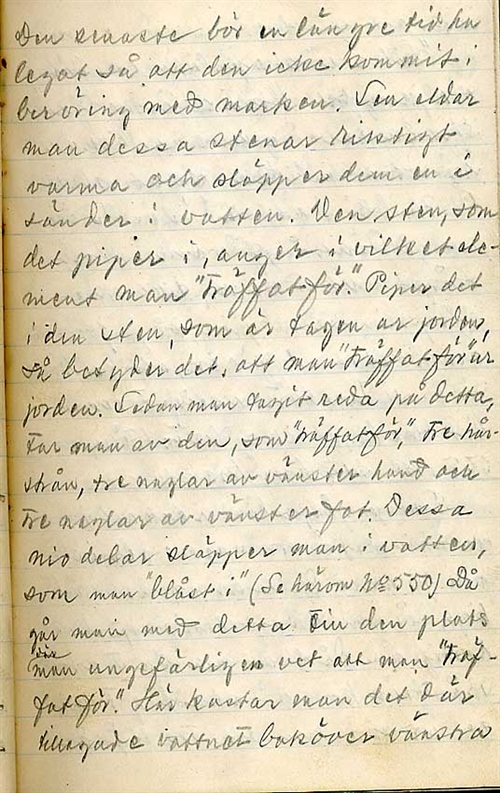 Den senaste bör en längre tid ha
legat så att den icke kommit i
beröring med marken. Sen eldar
man dessa stenar riktigt
varma och släpper dem en i
sänder i vatten. Den sten, som
det piper i, anger i vilket ele-
ment man "träffat för". Piper det
i den sten, som är tagen ur jorden,
så betyder det, att man "träffat för" ur
jorden. Sedan man tagit reda på detta,
tar man av den, som "träffat för", tre hår-
strån, tre naglar av vänster hand och
tre naglar av vänster fot. Dessa
nio delar släpper man i vatten,
som man "blåst i" (Se härom No 550) Då
går man med detta till den plats
där
man ungefärligen vet att man "träf-
fat för". Här kastar man det där
tillagade vattnet baköver vänstra